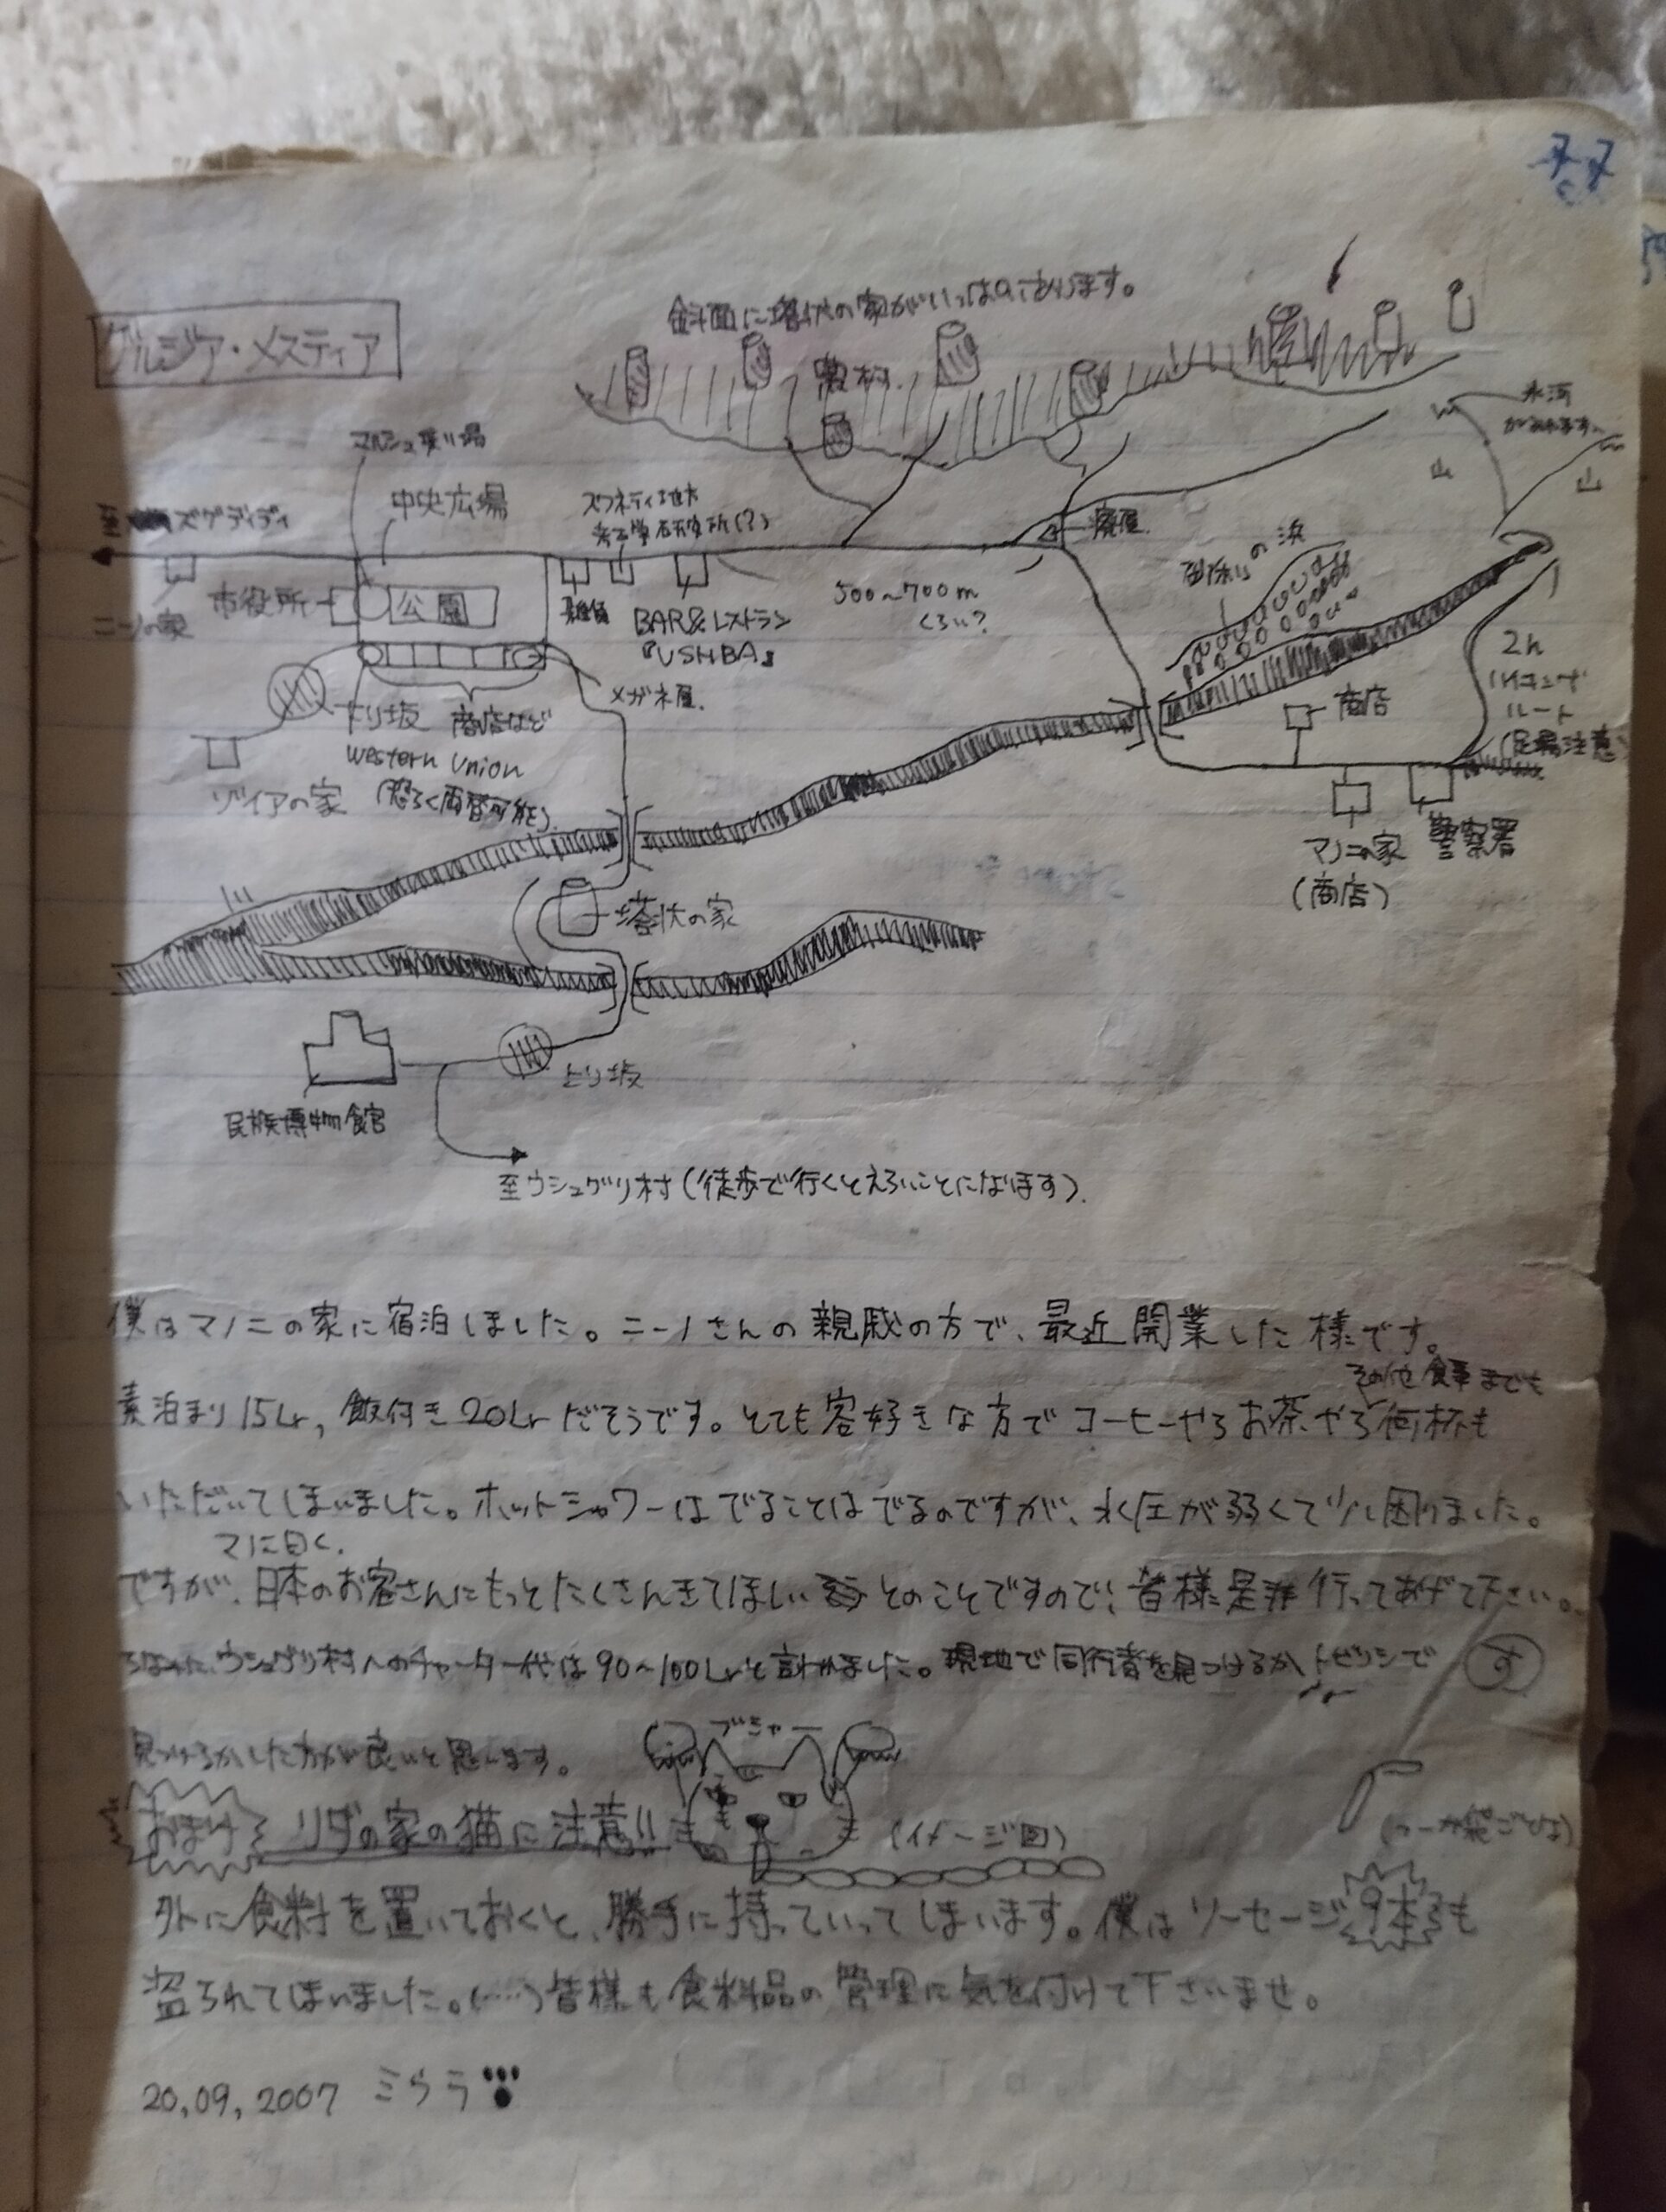 77
グルジア・メスティア
斜面に塔状の家がいっぱいあります。
農村
氷河
があります。
山
山
マルシュ乗り場
中央広場
至 ズグディディ
スワネティ地方
考古学研究所(?)
廃屋
の浜
ニーノの家
市役所
公園
雑貨
BAR&レストラン
『USHBA』
500〜700m
くらい?
2h
ハイキング
ルート
(足場注意)
メガネ屋
下り坂
商店など
Western Union
(恐らく両替可能)
ゾイアの家
商店
マノニの家
(商店)
警察署
塔状の家
上り坂
民族博物館
至ウシュグリ村(徒歩で行くとえらいことになります).
僕はマノニの家に宿泊しました。ニーノさんの親戚の方で、最近開業した様です。
その他食事までも
素泊まり15Lr, 飯付き20Lrだそうです。とても客好きな方でコーヒーやらお茶やら何杯も
いただいてしまいました。ホットシャワーはでることはでるのですが、水圧が弱くて少し困りました。
マノニ曰く.
ですが、日本のお客さんにもっとたくさんきてほしいとのことですので、皆様是非行ってあげて下さい。
ウシュグリ村へのチャーター代は90〜100Lrと言われました。現地で同行者を見つけるか、トビリシで
見つけるかした方が良いと思います。
ブシャー
おまけ リダの家の猫に注意!! (イメージ図)
外に食料を置いておくと、勝手に持っていってしまいます。僕はソーセージ9本も
盗られてしまいました。(……)皆様も食料品の管理に気を付けて下さいませ。
20,09,2007 ミウラ